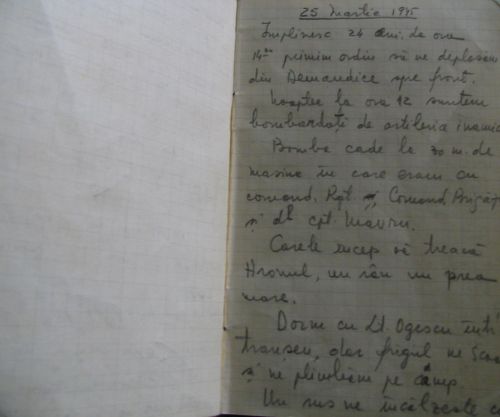 25 Martie 1945
Implinesc 24 ani. La ora
14 primim ordin să ne deplasăm
din Demandice spre front.
Noaptea la ora 12 suntem
bombardați de artileria inamic
Bomba cade la 30 m. de
masina în care eram cu
comand. Rgt. și Comand. Brigăz
și dl cpt. Mavru.
Carele încep să treacă
Hronul, un râu nu prea
mare.
Dorm cu Lt. Ogescu într'
tranșeu, dar frigul ne scoa
și ne plimbăm pe câmp.
Un rus ne încălzește c